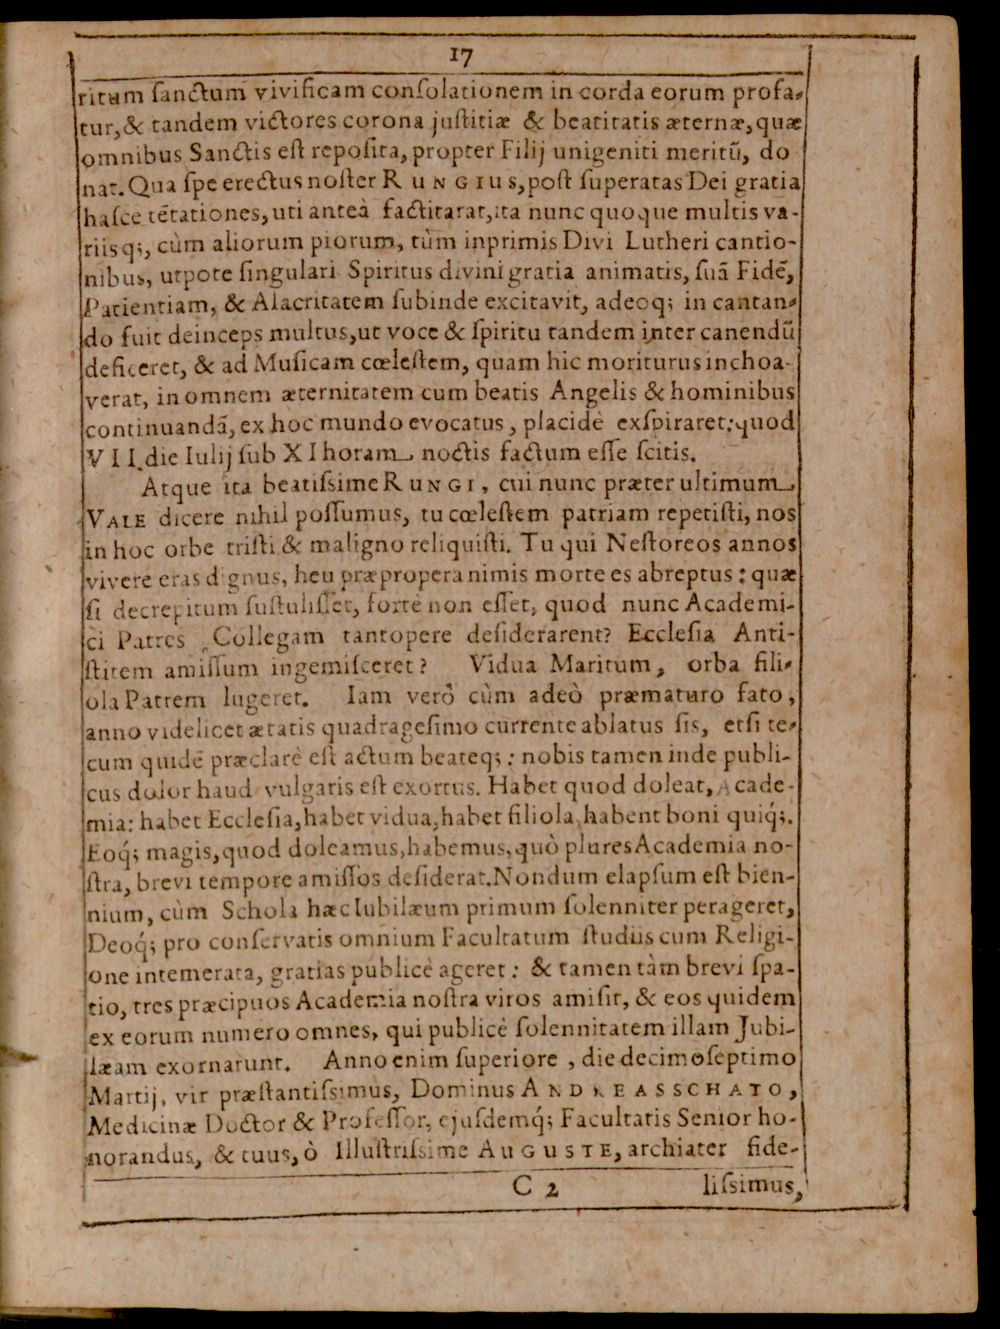 17
ritum ſanctum vivificam conſolationem in corda eorum profa-
tur, & tandem victores corona juſtitiæ & beatitatis æternæ, quæ
omnibus Sanctis eſt repoſita, propter Filij unigeniti meritũ, do
nat. Qua ſpe erectus noſter RUNGIUS, poſt ſuperatas Dei gratia
haſce tẽtationes, uti anteà factitarat, ita nunc quoque multis va-
riisq;, cùm aliorum piorum, tùm inprimis Divi Lutheri cantio-
nibus, utpote ſingulari Spiritus divini gratia animatis, ſuã Fidẽ,
Patientiam, & Alacritatem ſubinde excitavit, adeoq; in cantan-
do fuit deinceps multus, ut voce & ſpiritu tandem inter canendũ
deficeret, & ad Muſicam cœleſtem, quam hic moriturus inchoa-
verat, in omnem æternitatem cum beatis Angelis & hominibus
continuandã, ex hoc mundo evocatus, placidè exſpiraret; quod
VII. die Iulij ſub XI horam noctis factum eſſe ſcitis.
Atque ita beatiſsime RUNGI, cui nunc præter ultimum
VALE dicere nihil poſſumus, tu cœleſtem patriam repetiſti, nos
in hoc orbe triſti & maligno reliquiſti. Tu qui Neſtoreos annos
vivere eras dignus, heu præpropera nimis morte es abreptus: quæ
ſi decrepitum ſuſtuliſſet, fortè non eſſet, quod nunc Academi-
ci Patres Collegam tantopere deſiderarent? Eccleſia Anti-
ſtitem amiſſum ingemiſceret? Vidua Maritum, orba fili-
ola Patrem lugeret. Iam verò cùm adeò præmaturo fato,
anno videlicet ætatis quadrageſimo currente ablatus ſis, etſi te-
cum quidẽ præclarè eſt actum beateq;: nobis tamen inde publi-
cus dolor haud vulgaris eſt exortus. Habet quod doleat, Acade-
mia: habet Eccleſia, habet vidua, habet filiola, habent boni quiq́;.
Eoq́; magis, quod doleamus, habemus, quò plures Academia no-
ſtra, brevi tempore amiſſos deſiderat. Nondum elapſum eſt bien-
nium, cùm Schola hæc Iubilæum primum ſolenniter perageret,
Deoq́; pro conſervatis omnium Facultatum ſtudiis cum Religi-
one intemerata, gratias publicè ageret: & tamen tàm brevi ſpa-
tio, tres præcipuos Academia noſtra viros amiſit, & eos quidem
ex eorum numero omnes, qui publicè ſolennitatem illam Jubi-
læam exornarunt. Anno enim ſuperiore, die decimoſeptimo
Martij, vir præſtantiſsimus, Dominus ANDREAS SCHATO,
Medicinæ Doctor & Profeſſor, ejuſdemq́; Facultatis Senior ho-
norandus, & tuus, ò Illuſtriſsime AUGUSTE, archiater fide-
C 2 liſsimus,